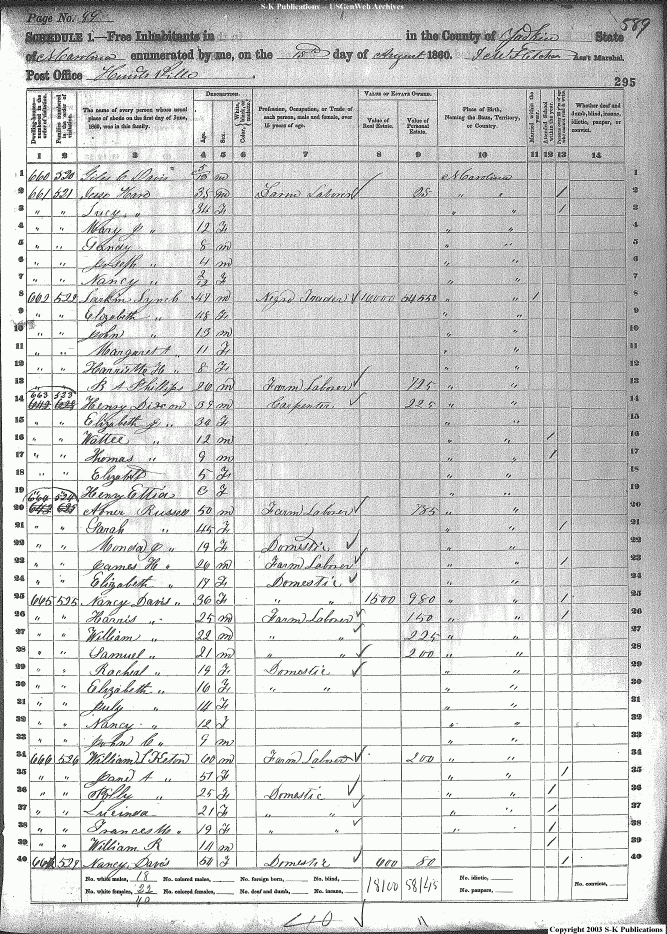 S-K Publications -- USGenWeb Archives
Page No. 44 589
SCHEDULE 1.—Free Inhabitants in in the County of Yadkin State
of N Carolina enumerated by me, on the 15th day of August 1860. Ass't Marshal.
Post Office 295
Dwelling-houses numbered in the order of visitation. Families numbered in the order of visitation. The name of every person whose usual place of abode on the first day of June, 1860, was in this family. DESCRIPTION. Age. Sex. Color, Profession, Occupation, or Trade of each person, male and female, over 15 years of age. VALUE OF ESTATE OWNED. Value of Real Estate. Value of Personal Estate. Place of Birth, Naming the State, Territory, or Country. Married within the year. Attended School within the year. Whether deaf and dumb, blind, insane, idiotic, pauper, or convict.
1 2 3 4 5 6 7 8 9 10 11 12 13 14
1 660 520 Giles C Davis m N Carolina 1
2 661 521 Jesse 35 m Farm Laborer 25 " " / 2
3 " " Lucy " 34 F " " / 3
4 " " Mary J " 12 F " " 4
5 " " 8 m " " 5
6 " " Joseph " 4 m " " 6
7 " " Nancy " 2/12 F " " 7
8 662 522 Larkin Lynch 49 m Negro Trader 10000 54550 " " 1 8
9 " " Elizabeth " 48 F " " 9
10 " " John " 13 m " " 10
11 " " Margaret A " 11 F " " 11
12 " " Harriette H " 8 F " " 12
13 " " R A Phillips 26 m Farm Laborer 125 " " 13
14 663 523 Henry Dixon 39 m Carpenter 225 " " 14
15 " " Elizabeth J " 34 F " " 15
16 " " " 12 m " " / 16
17 " " Thomas " 9 m " " / 17
18 " " Elizabeth 5 F " " 18
19 " " Henry Ettia F " " 19
20 664 524 Abner Russell 50 m Farm Laborer 185 " " 20
21 " " Sarah " 45 F " " / 21
22 " " " 19 F Domestic " " 22
23 " " James H " 20 m Farm Laborer " " / 23
24 " " Elizabeth " 17 F Domestic " " 24
25 665 525 Nancy Davis " 36 F " " 1500 980 " " / 25
26 " " Harris " 25 m Farm Laborer 150 " " / 26
27 " " William " 22 m " " 225 27
28 " " Samuel " 21 m " " 200 " " 28
29 " " Racheal " 19 F Domestic " " 29
30 " " Elizabeth " 16 F " " " " 30
31 " " July " 14 F " " 31
32 " " Nancy " 12 F " " 32
33 " " John C " 9 m " " 33
34 666 526 William S Keton 60 m Farm Laborer 200 " " 34
35 " " Jane A " 51 F " " / 35
36 " " Polly " 25 F Domestic " " / 36
37 " " Lucinda " 21 F " " " " / 37
38 " " Frances M " 19 F " " " " / 38
39 " " William R 14 m / 39
40 667 527 Nancy Davis 50 F Domestic 600 80 / 40
No. white males, 18 No. colored males, No. foreign born, No. blind, 18100 58145 No. idiotic, No. convicts,
No. white females, 22 No. colored females, No. deaf and dumb, No. insane, No. paupers,
40
40 "
Copyright 2003 S-K Publications